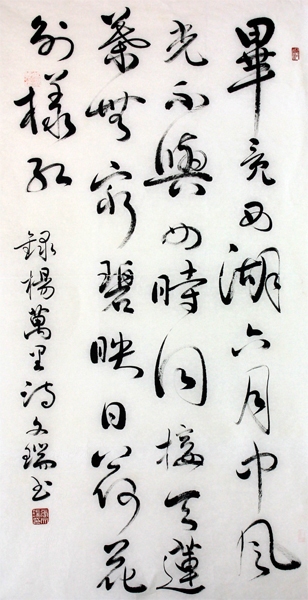 畢竟西湖六月中風
光不與四時同接天蓮
葉無窮碧映日荷花
別樣紅
録楊萬里詩文瑞书